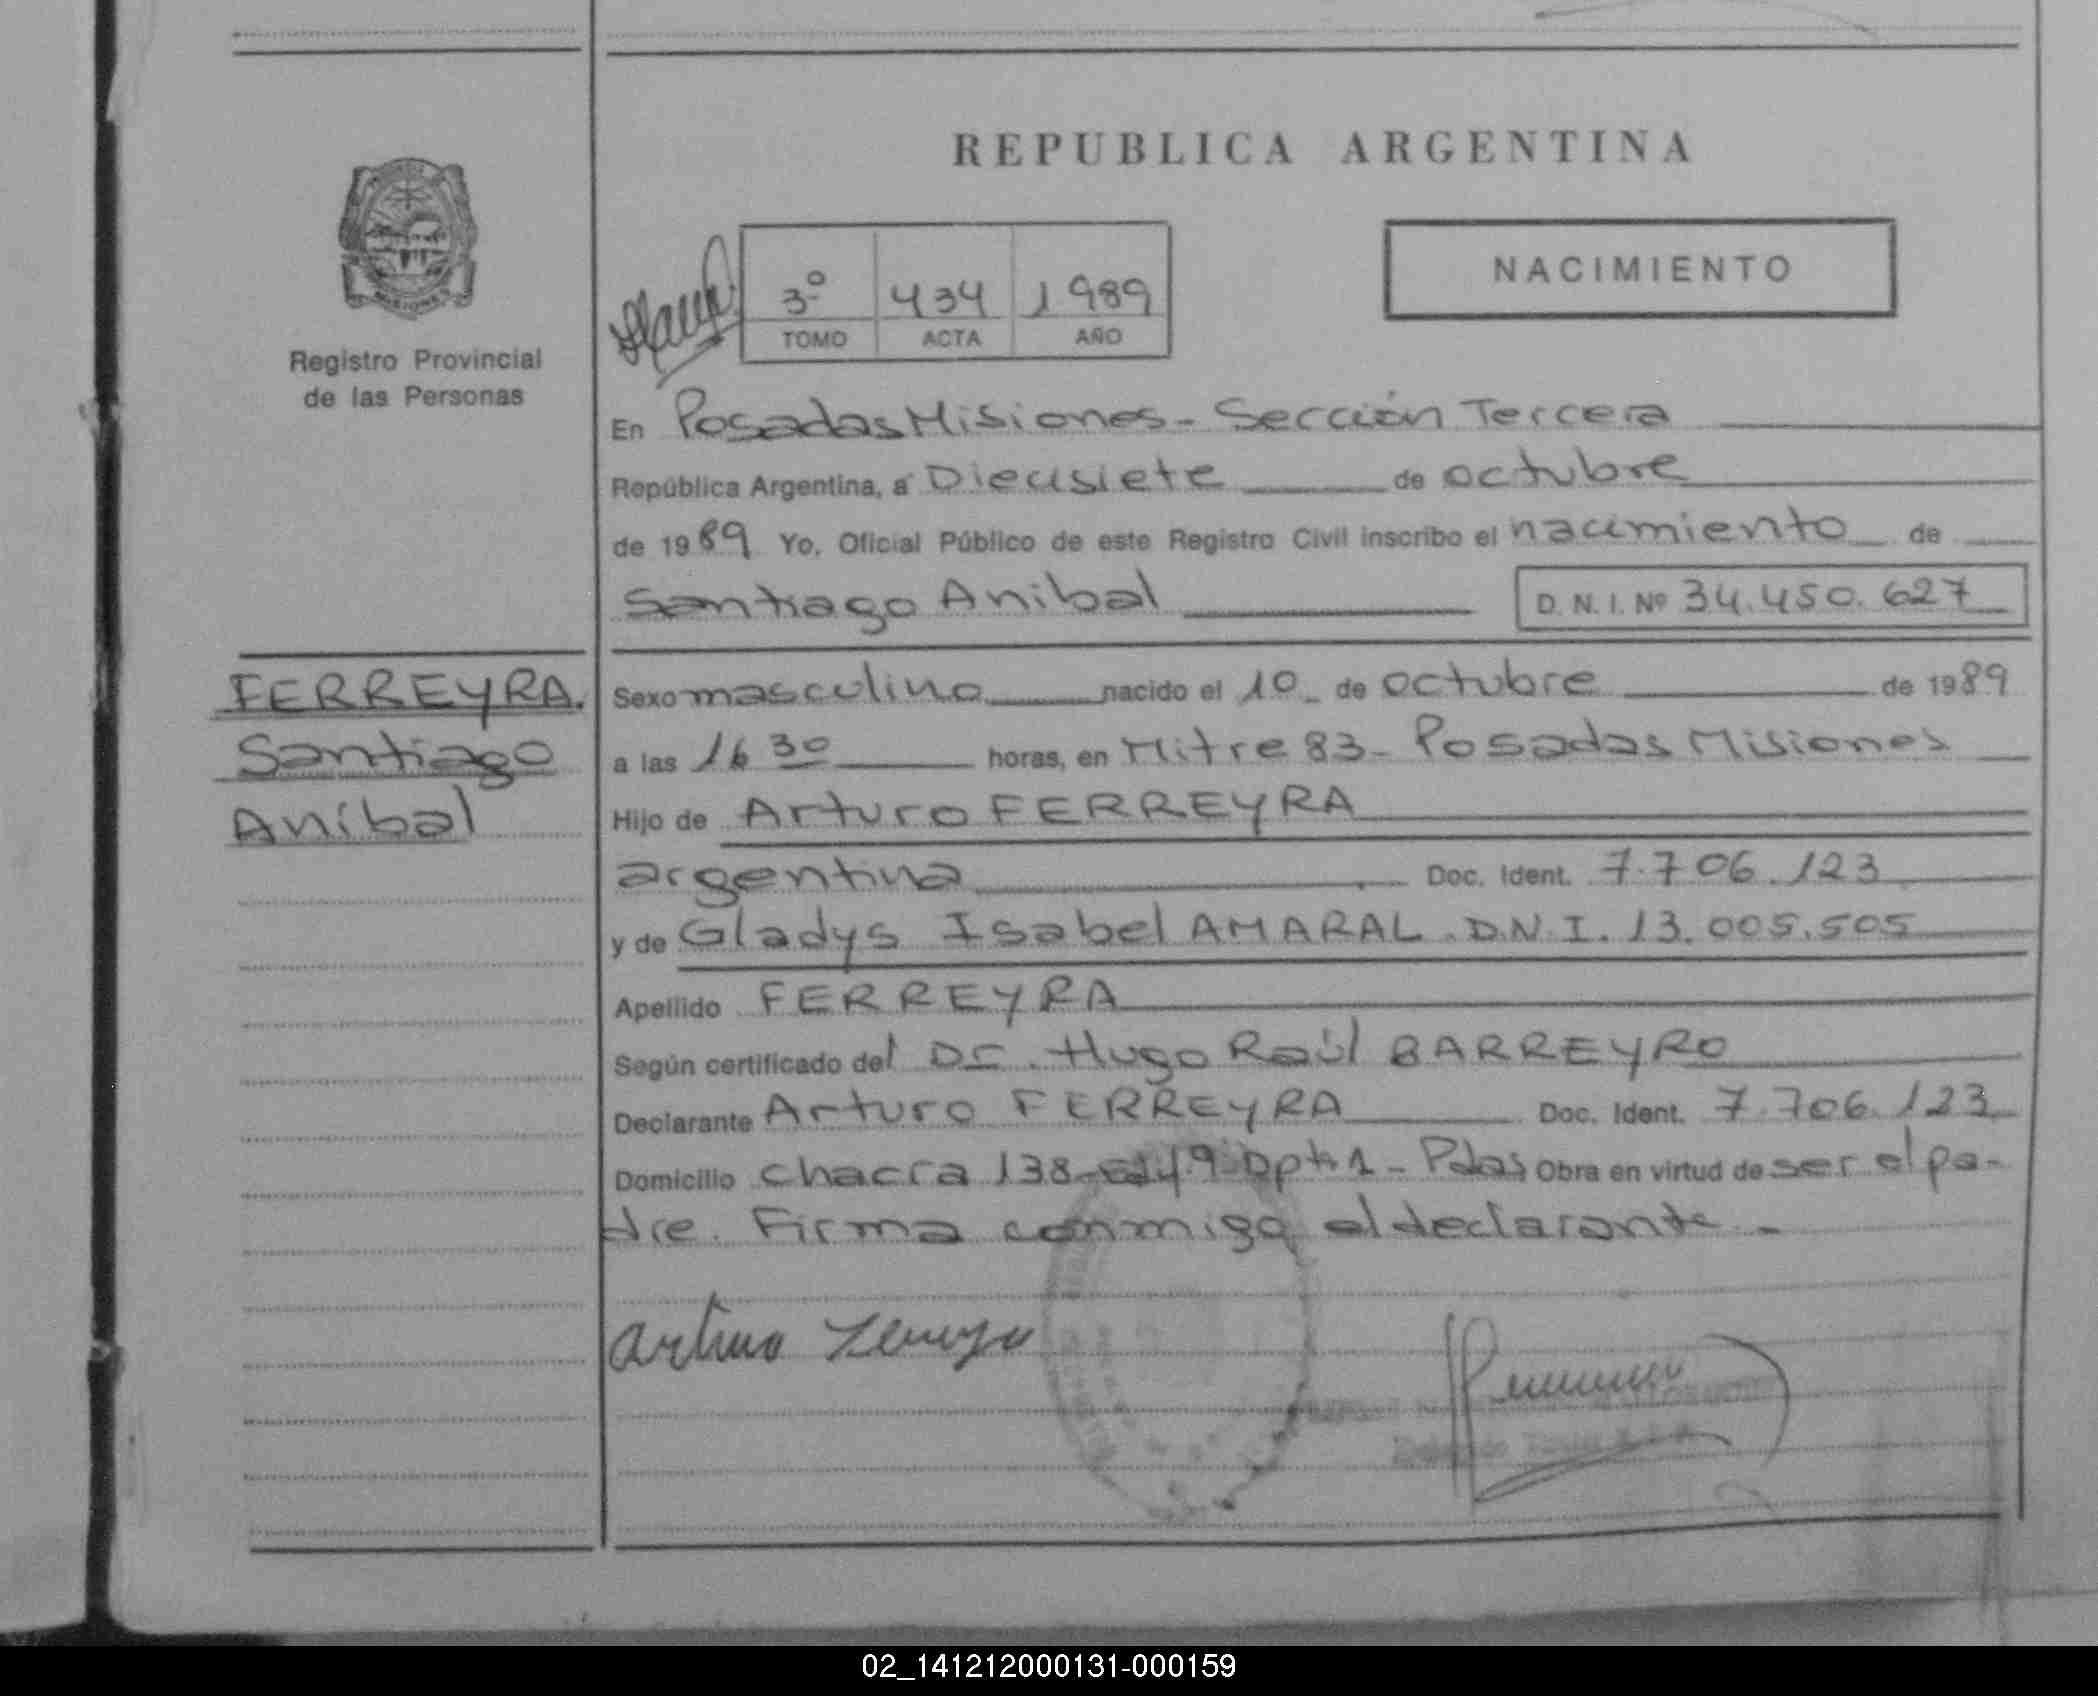 REPUBLICA ARGENTINA
NACIMIENTO
3º 434 1989
TOMO ACTA AÑO
Registro Provincial
de las Personas
En Posadas Misiones - Sección Tercera
República Argentina, a Diecisiete de octubre
de 1989 Yo. Oficial Público de este Registro Civil inscribo el nacimiento de
Santiago Anibal D.N.I. Nº 34.450.627
FERREYRA.
Santiago
Aníbal
Sexo masculino nacido el 10 de octubre de 1989
a las 16 30 horas, en Mitre 83 - Posadas Misiones
Hijo de Arturo FERREYRA
argentina Doc. Ident. 7.706.123
y de Gladys Isabel AMARAL. D.N.I. 13.005.505
Apellido FERREYRA
Según certificado del Dr. Hugo Raúl BARREYRO
Declarante Arturo FERREYRA Doc. Ident. 7.706.123
Domicilio chacra 138 - Dpto 1 - Pdas Obra en virtud de ser el pa-
dre. Firma conmigo el declarante -
Arturo Ferreyra
02_141212000131-000159